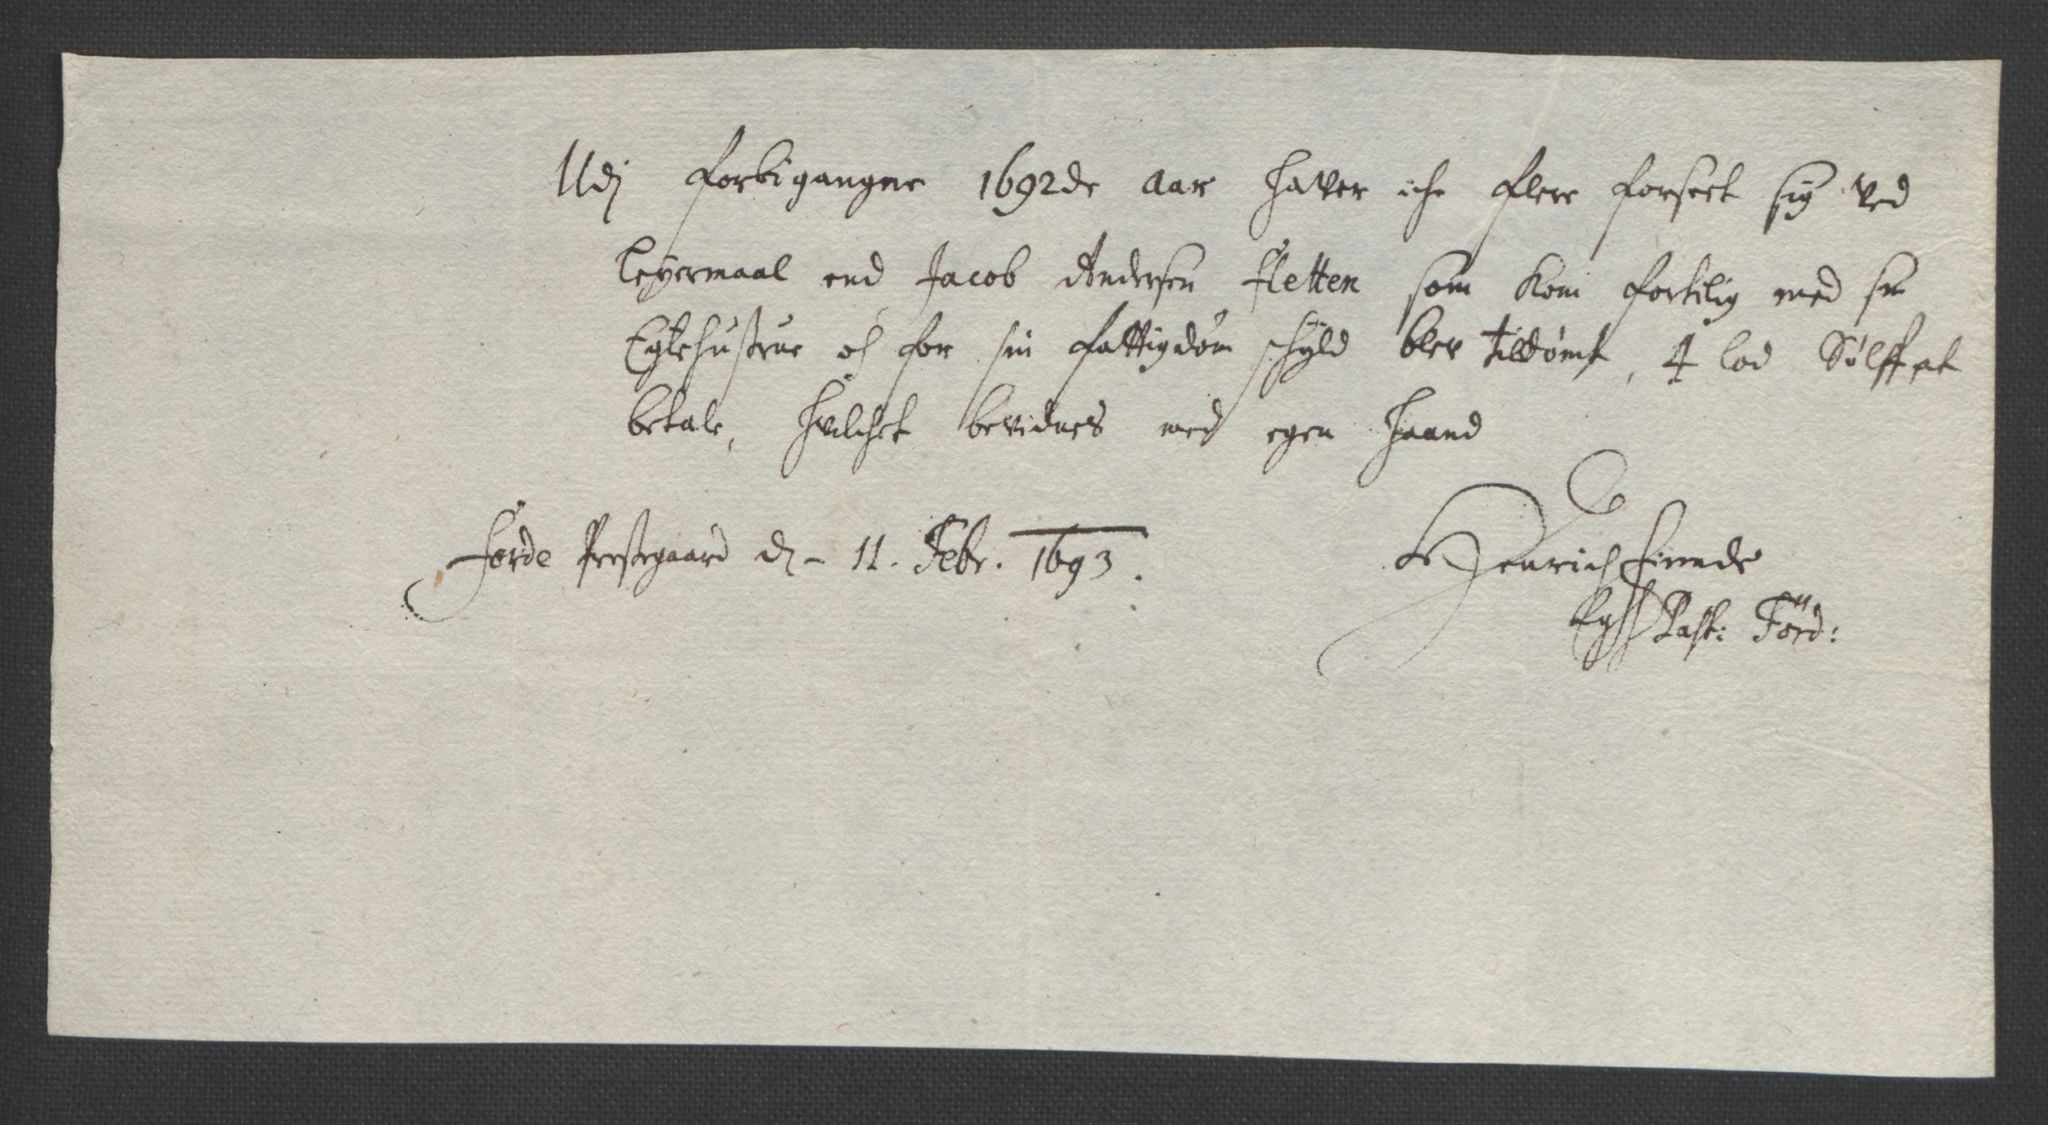 Udj forbigangne 1692de aar hafver iche flere forseet sig ved
leyermaal end Jacob Andersen Fletten som kom fortilig med sin
Egtehustrue och for sin fattigdom schyld blev tildømt, 4 lod Sølff at
betale, hvilchet bevidnes med egen haand
Førde Prestegaard dj - 11. Febr. 1693.
Henrich
Past: Förd: